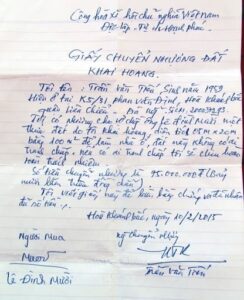 Cộng hòa xã hội chủ nghĩa Việt Nam
Độc lập - Tự do - Hạnh phúc.
GIẤY CHUYỂN NHƯỢNG ĐẤT
KHAI HOANG.
Tôi tên: Trần Văn Tiến, Sinh năm 1959
Hiện ở tại K5/31, Phạm Văn Định, Hoà Khánh Bắc,
quận Liên Chiểu - Đà Nẵng - SCM: 20039293
Tôi có nhượng cho vợ chồng Ông Lê Đình Mười một
thửa đất do tôi khai hoang, diện tích 05m x 20m
bằng 100m² để làm nhà ở, đất này không có ai
tranh chấp, nếu có ai tranh chấp tôi sẽ chịu hoàn
toàn trách nhiệm
Số tiền chuyển nhượng là 95.000.000đ (chín
mươi lăm triệu đồng chẵn)
Tôi viết giấy này để làm bằng chứng và đã nhận
đủ số tiền.
Hoà Khánh Bắc, ngày 10/2/2015
Người Mua
Người chuyển nhượng
Mười
Lê Đình Mười
Trần Văn Tiến